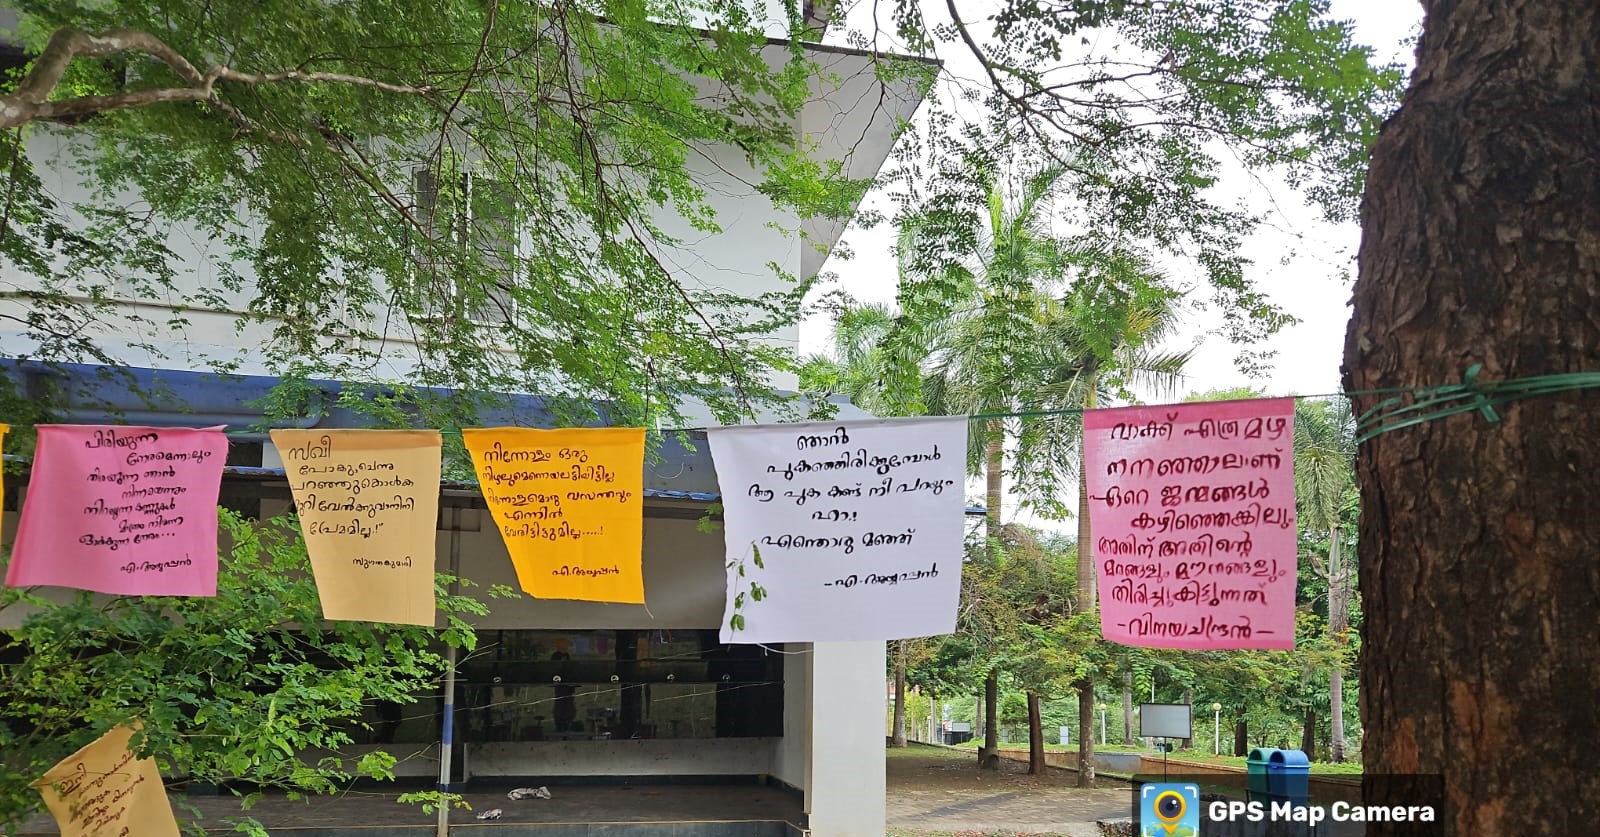 പിരിയുന്ന
നേരമെന്നാലും
തിരയുന്ന ഞാൻ
നിന്നെയെന്നും
നിറയുന്ന കണ്ണുകൾ
നിന്നെ
ഓർക്കുന്ന നേരം...
എ. അയ്യപ്പൻ
സഖീ
പോകൂ, ചെന്നു
പറഞ്ഞുകൊൾക
മുറിവേൽക്കുവാനിനി
പ്രേമമില്ല!"
സുഗതകുമാരി
നിന്നോളം ഒരു
നിഴലുമെന്നെയലട്ടിയിട്ടില്ല
നിന്നോളമൊരു വസന്തവും
എന്നിൽ
വേരിട്ടിട്ടുമില്ല.....!
എ. അയ്യപ്പൻ
ഞാൻ
പുകഞ്ഞിരിക്കുമ്പോൾ
ആ പുക കണ്ട് നീ പറയും
ഹാ!
എന്തൊരു മഞ്ഞ്
-എ. അയ്യപ്പൻ
വാക്ക് എത്ര മഴ
നനഞ്ഞാലാണ്
ഏറെ ജന്മങ്ങൾ
കഴിഞ്ഞെങ്കിലും
അതിന് അതിന്റെ
മറങ്ങളും മൗനങ്ങളും
തിരിച്ചുകിട്ടുന്നത്
-വിനയചന്ദ്രൻ-
ഇനി
GPS Map Camera